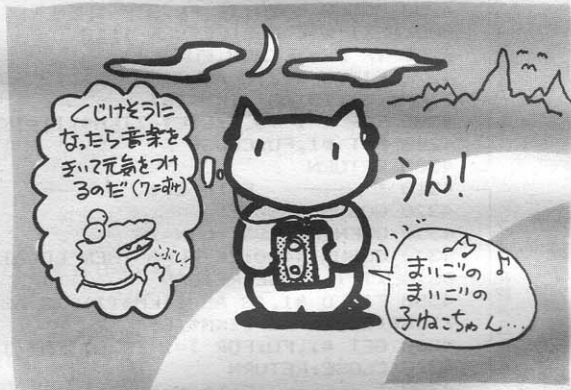 くじけそうに
なったら音楽を
きいて元気をつけ
るのだ(ワニすけ)
こぶし
うん!
♪
まいごの
まいごの
子ねこちゃん…